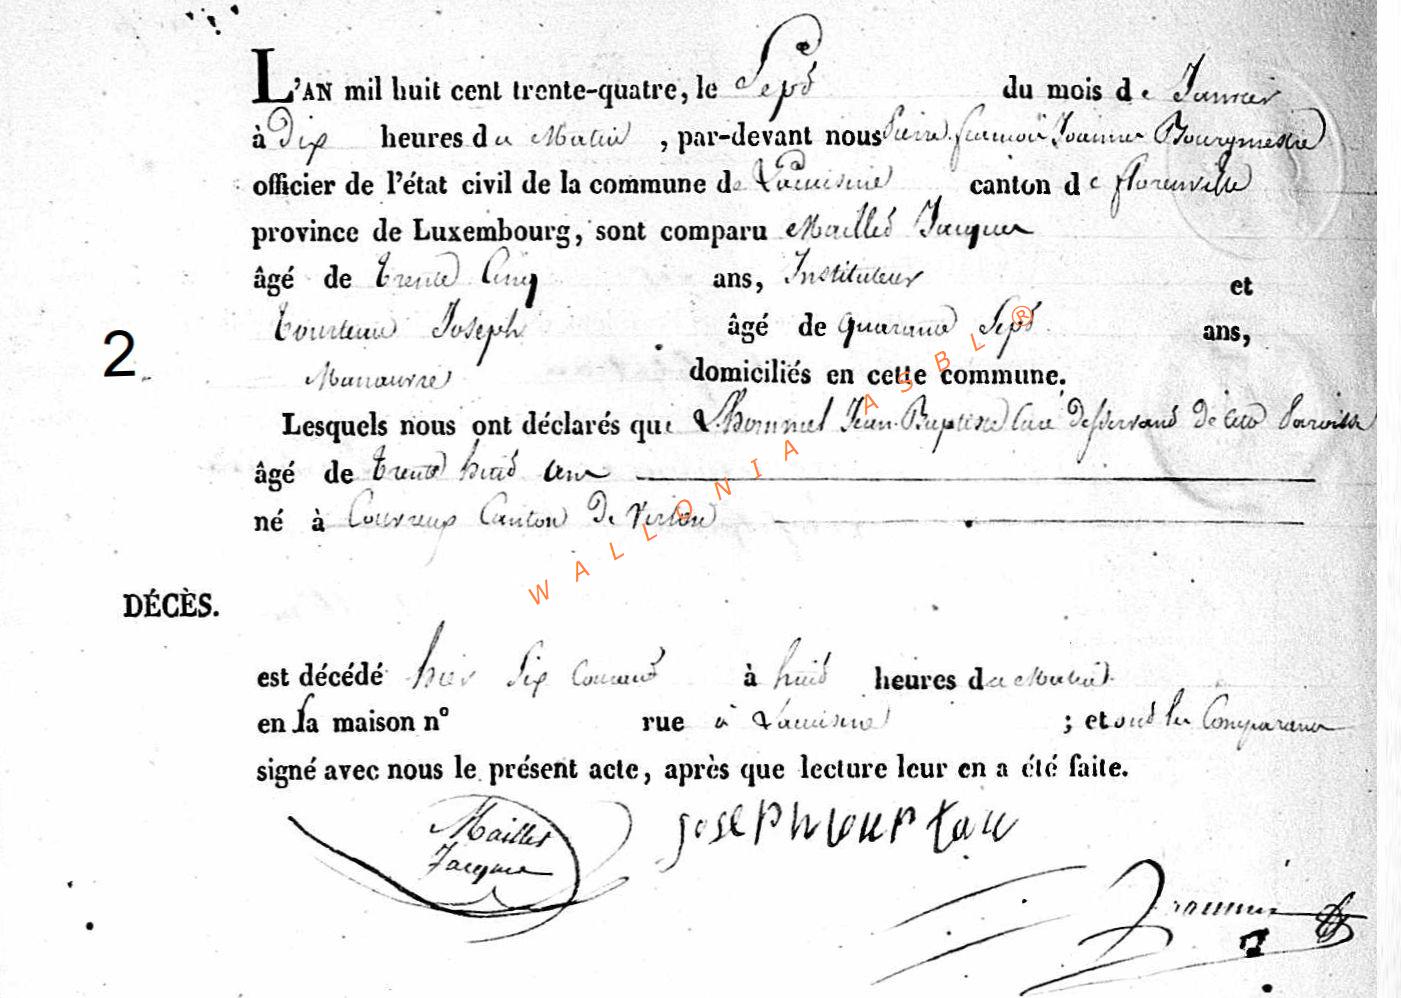 L'AN mil huit cent trente-quatre, le Sept du mois de Janvier
à Dix heures du Matin, par-devant nous Pierre Joannes Bourgmestre
officier de l'état civil de la commune de Lacuisine canton de florenville
province de Luxembourg, sont comparu Maillet Jacques
âgé de trente Cinq ans, Instituteur et
tourteau Joseph âgé de quarante Sept ans,
2
Manœuvre domiciliés en cette commune.
Lesquels nous ont déclarés que Lhommel Jean-Baptiste Curé Desservant de cette Paroisse
âgé de trente huit ans
né à Canton De Virton
DÉCÈS.
est décédé hier Six Courant à huit heures du Matin
en sa maison n° rue à Lacuisine ; et ont les Comparans
signé avec nous le présent acte, après que lecture leur en a été faite.
Maillet
Jacques
joseph tourtau
WALLONIA ASBL ®